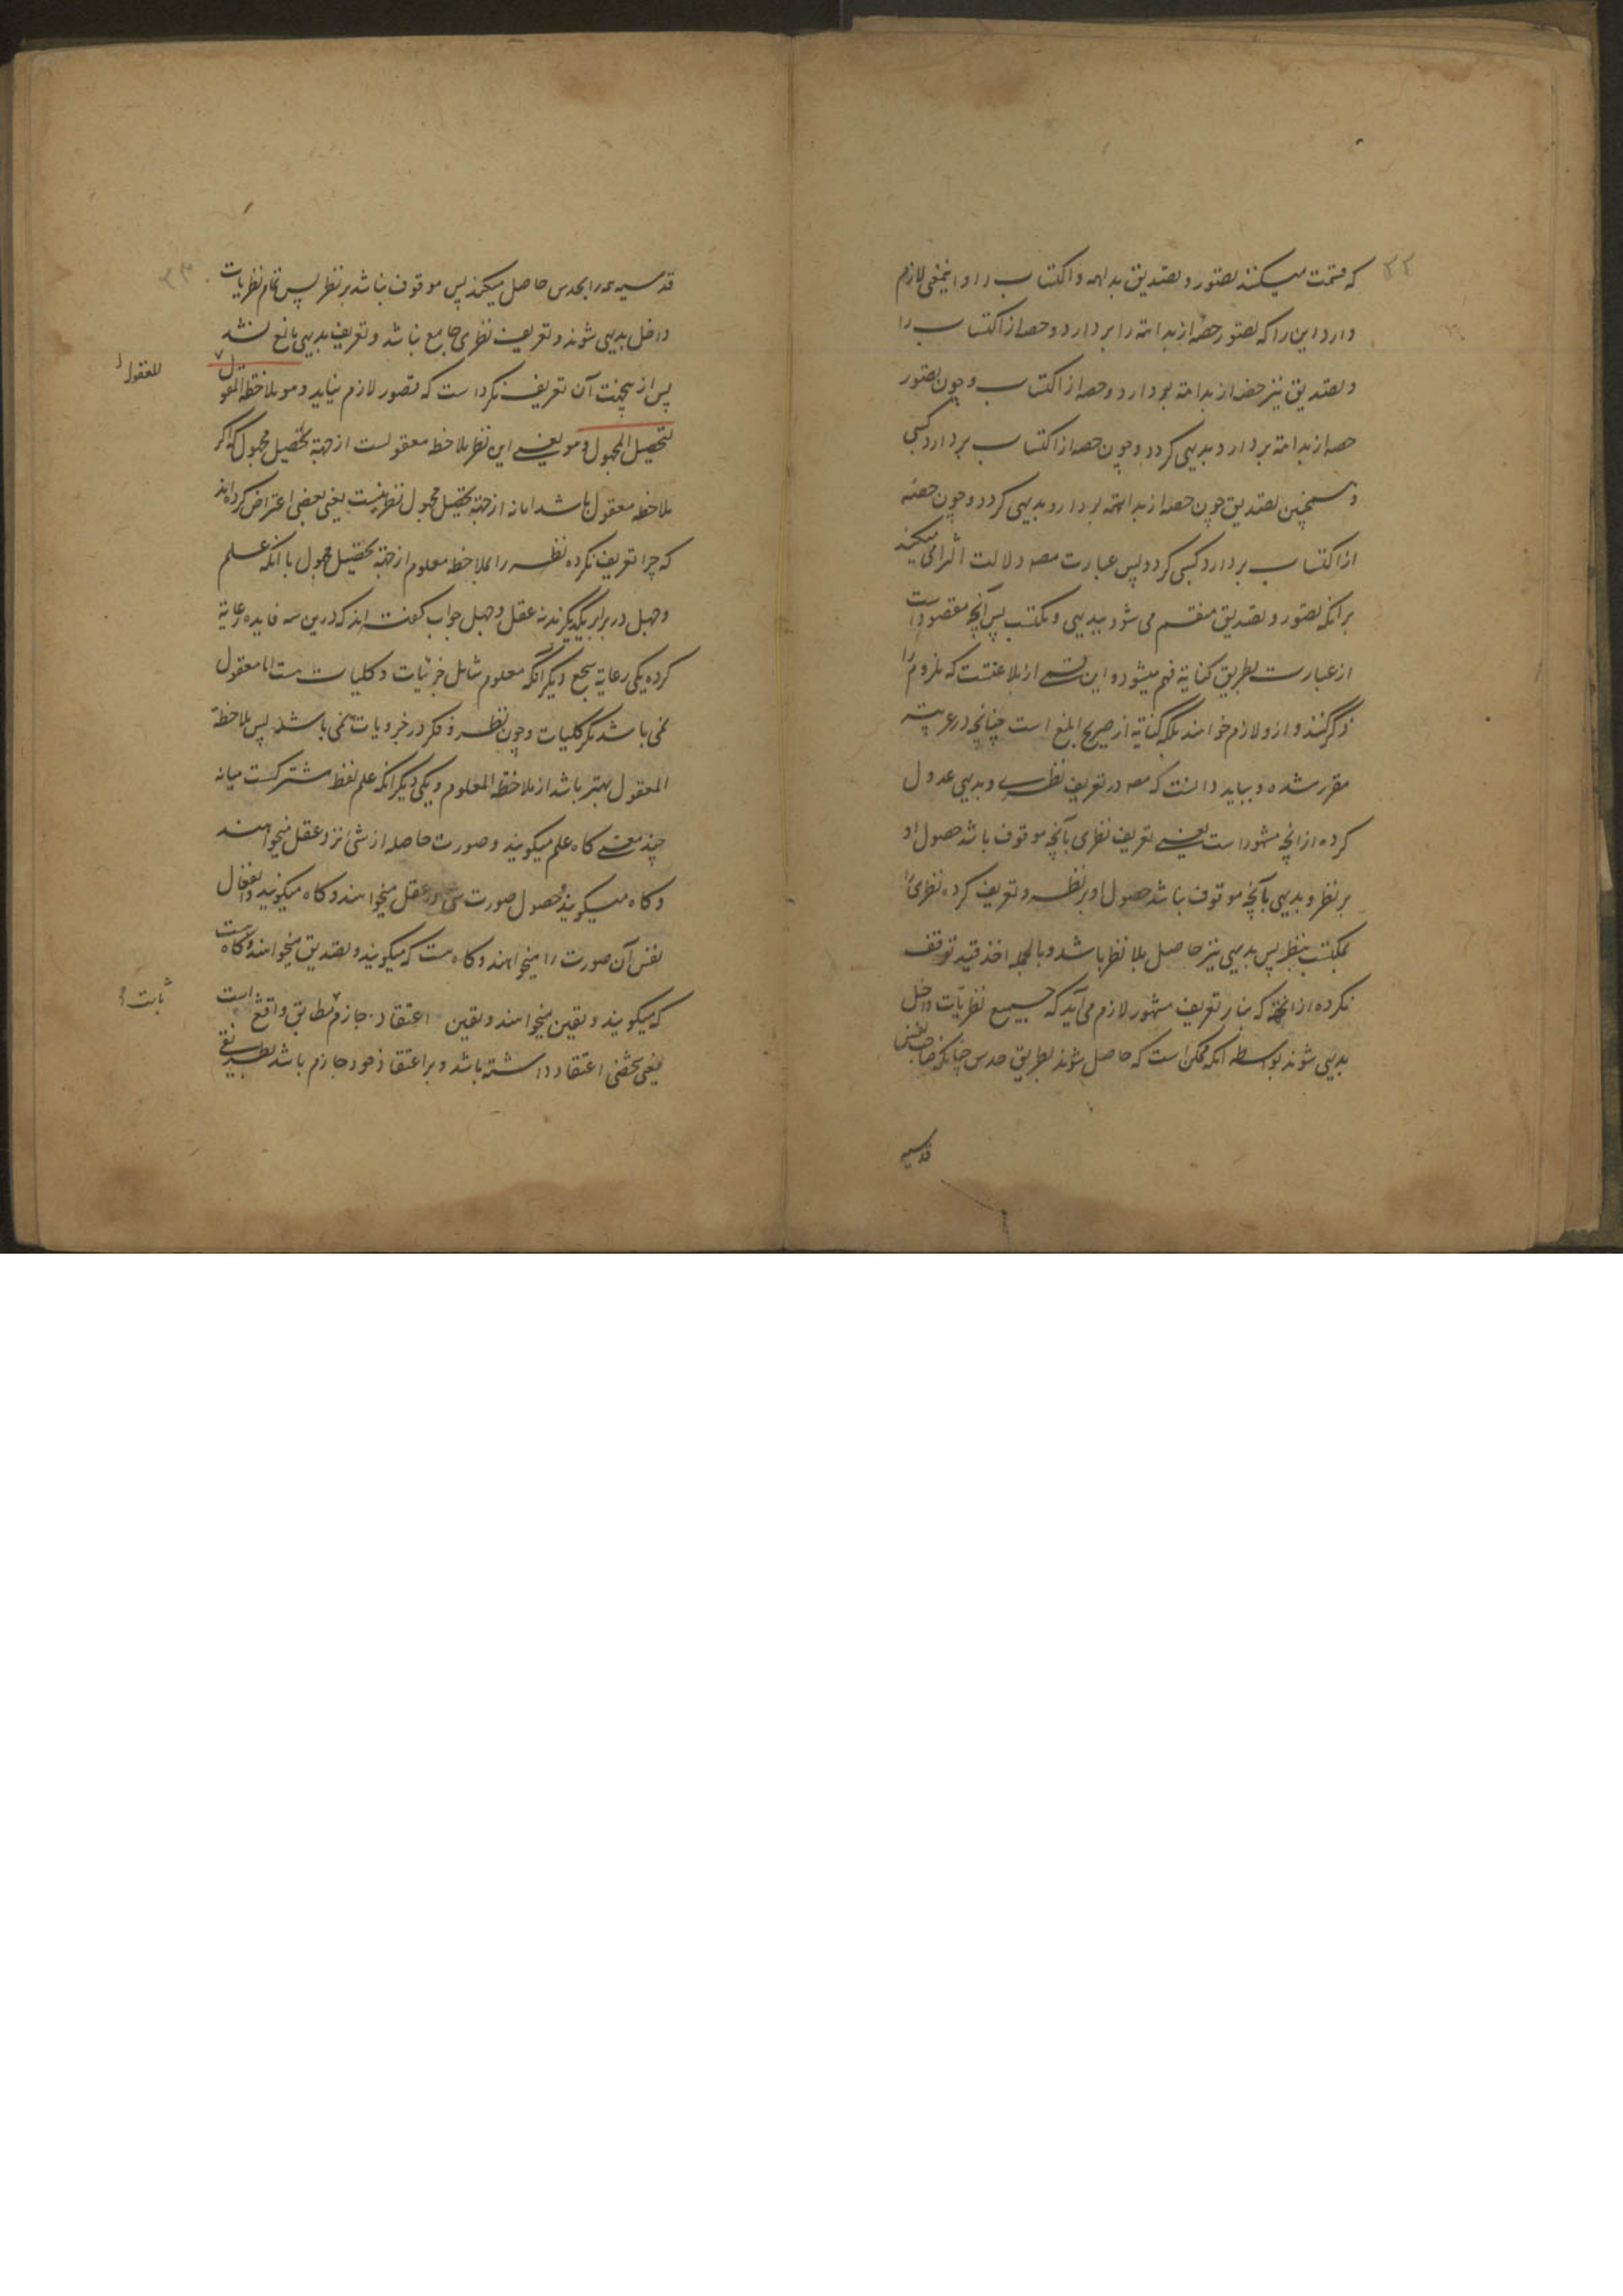 ۳۲
که قسمت میکنند تصور و تصدیق بداهه و اکتساب را و اینمعنی لازم
دارد این را که تصور حصه از بداهته را بردارد و حصه از اکتساب را
و تصدیق نیز حصه از بداهته بردارد و حصه از اکتساب و چون تصور
حصه از بداهته بردارد بدیهی گردد و چون حصه از اکتساب بردارد کسبی
و همچنین تصدیق چون حصه از بداهته بردارد بدیهی گردد و چون حصه
از اکتساب بردارد کسبی گردد پس عبارت مصه دلالت التزامی میکند
برانکه تصور و تصدیق منقسم می شود ببدیهی و مکتسب پس آنچه مقصود است
از عبارت بطریق کنایة فهم میشود و این از بلاغتست که ملزوم را
ذکر کنند و ازو لازم خواهند بلکه کنایة از صریح ابلغ است چنانچه در عربیته
مقرر شده و بباید دانست که مصه در تعریف نظری و بدیهی عدول
کرده از انچه مشهور است یعنی تعریف نظری بآنچه موقوف باشد حصول او
بر نظر و بدیهی بآنچه موقوف نباشد حصول او بر نظر و تعریف کرده نظری را
بمکتسب بنظر پس بدیهی نیز حاصل بلا نظر باشد و بالجمله اخذ قید توقف
نکرده از انجهته که بنابر تعریف مشهور لازم می آید که جمیع نظریات داخل
بدیهی شوند بواسطه انکه ممکن است که حاصل شوند بطریق حدس چنانکه صاحب نفس
قدسیه
۳۳
قدسیه همه را بحدس حاصل میکند پس موقوف نباشد بر نظر پس تمام نظریات
داخل بدیهی شوند و تعریف نظری جامع نباشد و تعریف بدیهی مانع نشد
پس از یجهت آن تعریف نکرد است که قصور لازم نیاید و هو ملاحظة المعقول
للمعقول
لتحصیل المجهول و هو یعنی این نظر ملاحظه معقولست از جهتة تحصیل مجهول که اگر
ملاحظه معقول باشد اما نه از جهتة تحصیل مجهول نظر نیست یعنی بعضی اعتراض کرده اند
که چرا تعریف نکرده نظر را بملاحظه معلوم از جهتة تحصیل مجهول با انکه علم
و جهل در برابر یکدیگرند نه عقل و جهل جواب گفته اند که درین سه فایده رعایة
کرده یکی رعایة سجع دیگر انکه معلوم شامل جزئیات و کلیات هست اما معقول
نمی باشد مگر کلیات و چون نظر و فکر در جزویات نمی باشد پس ملاحظة
المعقول بهتر باشد از ملاحظة المعلوم و یکی دیگر انکه علم لفظ مشترکست میانه
چند معنی گاه علم میگویند و صورت حاصله از شی نزد عقل میخواهند
و گاه میگویند و حصول صورت شی در عقل میخواهند و گاه میگویند و انفعال
نفس آن صورت را میخواهند و گاه هست که میگویند و تصدیق میخواهند و گاه هست
که میگویند و یقین میخواهند و یقین اعتقاد جازم مطابق واقع است
ثابت
یعنی شخصی اعتقاد داشته باشد و بر اعتقاد خود جازم باشد